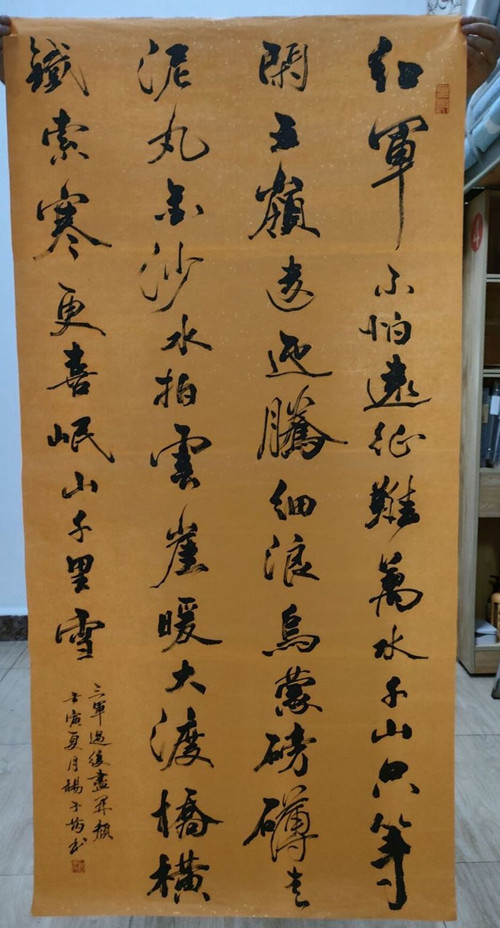 紅軍不怕遠征難萬水千山只等
閑五嶺逶迤騰細浪烏蒙磅礴走
泥丸金沙水拍雲崖暖大渡橋橫
鐵索寒更喜岷山千里雪
三軍過後盡開顏
壬寅夏月楊書